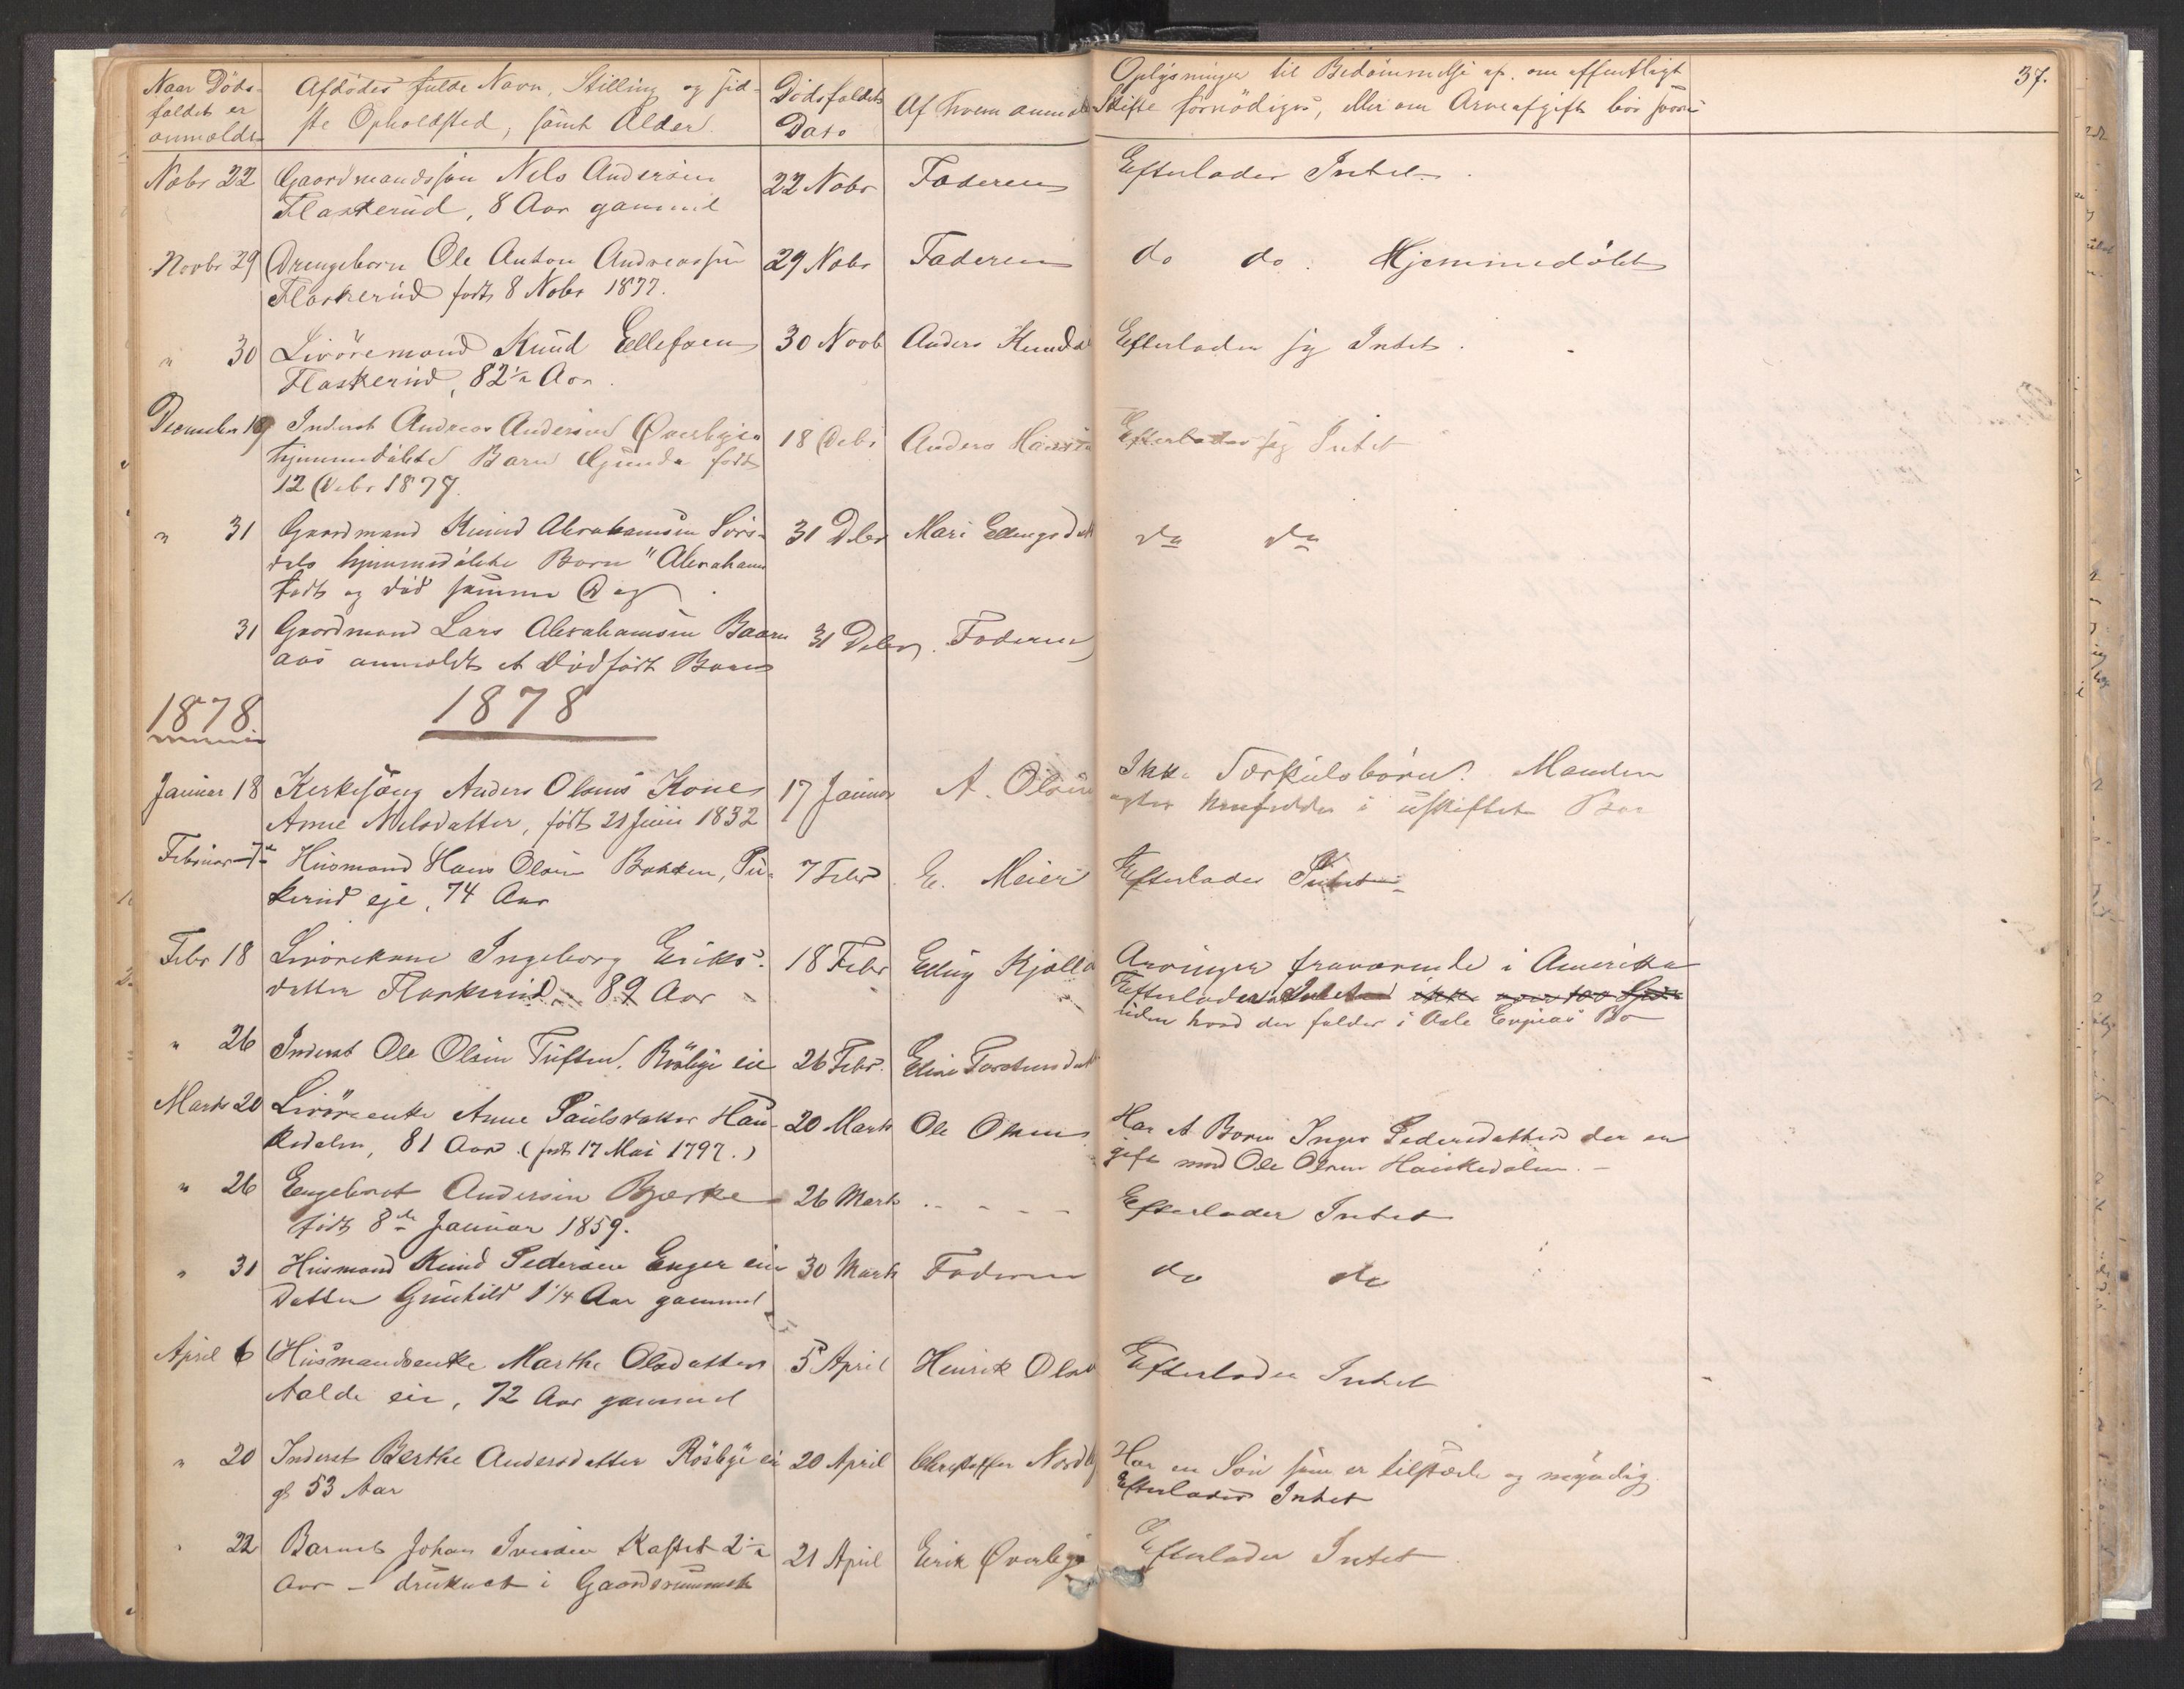 37.
Naar Döds- Afdödes fulde Navn, Stilling og sid- Dödsfaldets Af hvem anmeldt Oplysninger til Bedömmelse af, om offentligt
faldet er ste Opholdsted, samt Alder. Dato Skifte fornödiges, eller om Arveafgift bör svares
anmeldt
Nobr 22 Gaardmandssön Nels Andersen 22 Nobr Faderen Efterlader Intet.
Flaskerud, 8 Aar gammel
Novbr 29 Drengebarn Ole Anton Andreassen 29 Nobr Faderen do do. Hjemmedöbt
Flaskerud födt 8 Nobr 1877.
" 30 Livöremand Knud Ellefsen 30 Novb Anders Knuds Efterlader sig Intet.
Flaskerud, 82½ Aar.
December 18 Inderst Andreas Andersens Överbyeie 18 Debr Anders Hansen Efterlader sig Intet
hjemmedöbte Barn Gunda födt
12 Debr 1877.
" 31 Gaardmand Knud Abrahamsen Sörs- 31 Dcbr Mari Ellingsdatt do do
dals hjemmedöbte Barn "Abraham
födt og död samme Dag.
31 Gaardmand Lars Abrahamsen Baarn- 31 Dcbr. Faderen
aas anmeldt et Dödfödt Barn
1878 1878
Januar 18 Kirkesang. Anders Olsens Kone 17 Januar A. Olsen Ikke Særkulsbörn. Manden
Anne Nilsdatter, födt 21 Juni 1832 agter hensidde i uskiftet Bo
Februar 7de Husmand Hans Olsen Bakken, Pu- 7 Febr E. Meier Efterlader Intet
kerud eje, 74 Aar
Febr 18 Livörekone Ingeborg Eriks- 18 Febr Elling Kjölla Arvinger fraværende i Amerika
datter Flaskerud 89 Aar Efterlader Intet ikke over 100 Spd
uden hvad der falder i Bo
" 26 Inderst Ole Olsen Tuften, Rösbye eie 26 Febr. Eline Torstensdatt
Marts 20 Livöreenke Anne Paulsdatter Hau- 20 Marts Ole Olsen Har et Barn Inger Pedersdatter der er
kedalen, 81 Aar. (födt 17 Mai 1797.) gift med Ole Olsen Haukedalen.-
" 26 Engebret Andersen Bjerke 26 Marts .. - - - Efterlader Intet
födt 8de Januar 1859.
" 31 Husmand Knud Pedersen Enger eie 30 Marts Faderen do do
Datter Gunhild 1¼ Aar gammel
April 6 Husmandsenke Marthe Olsdatter 5 April Henrik Olsen Efterlader Intet
Aalde eie, 72 Aar gammel
" 20 Inderst Berthe Andersdatter Rösbye eie 20 April Christoffer Nordby Har en Sön som er tilstæde og myndig.
gl 53 Aar Efterlader Intet
" 22 Barnet Johan Iversen Kastet 2½ 21 April Erik Överbye Efterlader Intet.
Aar - druknet i Gaardsrummet